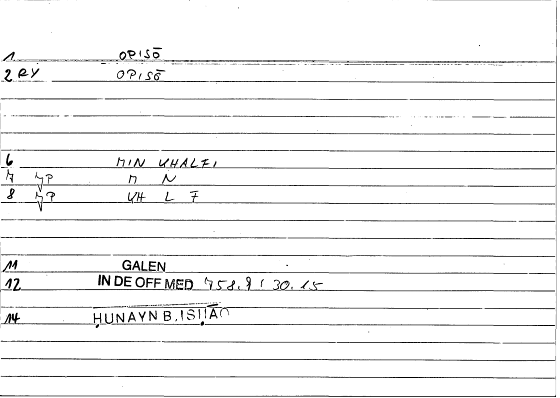 1 OPISŌ
2 RY OPISŌ
6 MIN KHALFI
7 M N
8 KH L F
11 GALEN
12 IN DE OFF MED 758.9; 30.15
14 ḤUNAYN B. ISḤĀQ